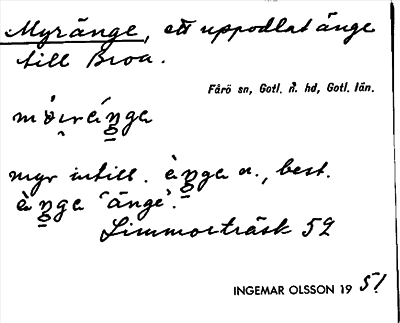 Myränge, ett uppodlat änge
till Broa.
Fårö sn, Gotl. n. hd, Gotl. län.
myr intill. ènga n., best.
ènga 'änge'.
Limmorträsk 52
INGEMAR OLSSON 1951